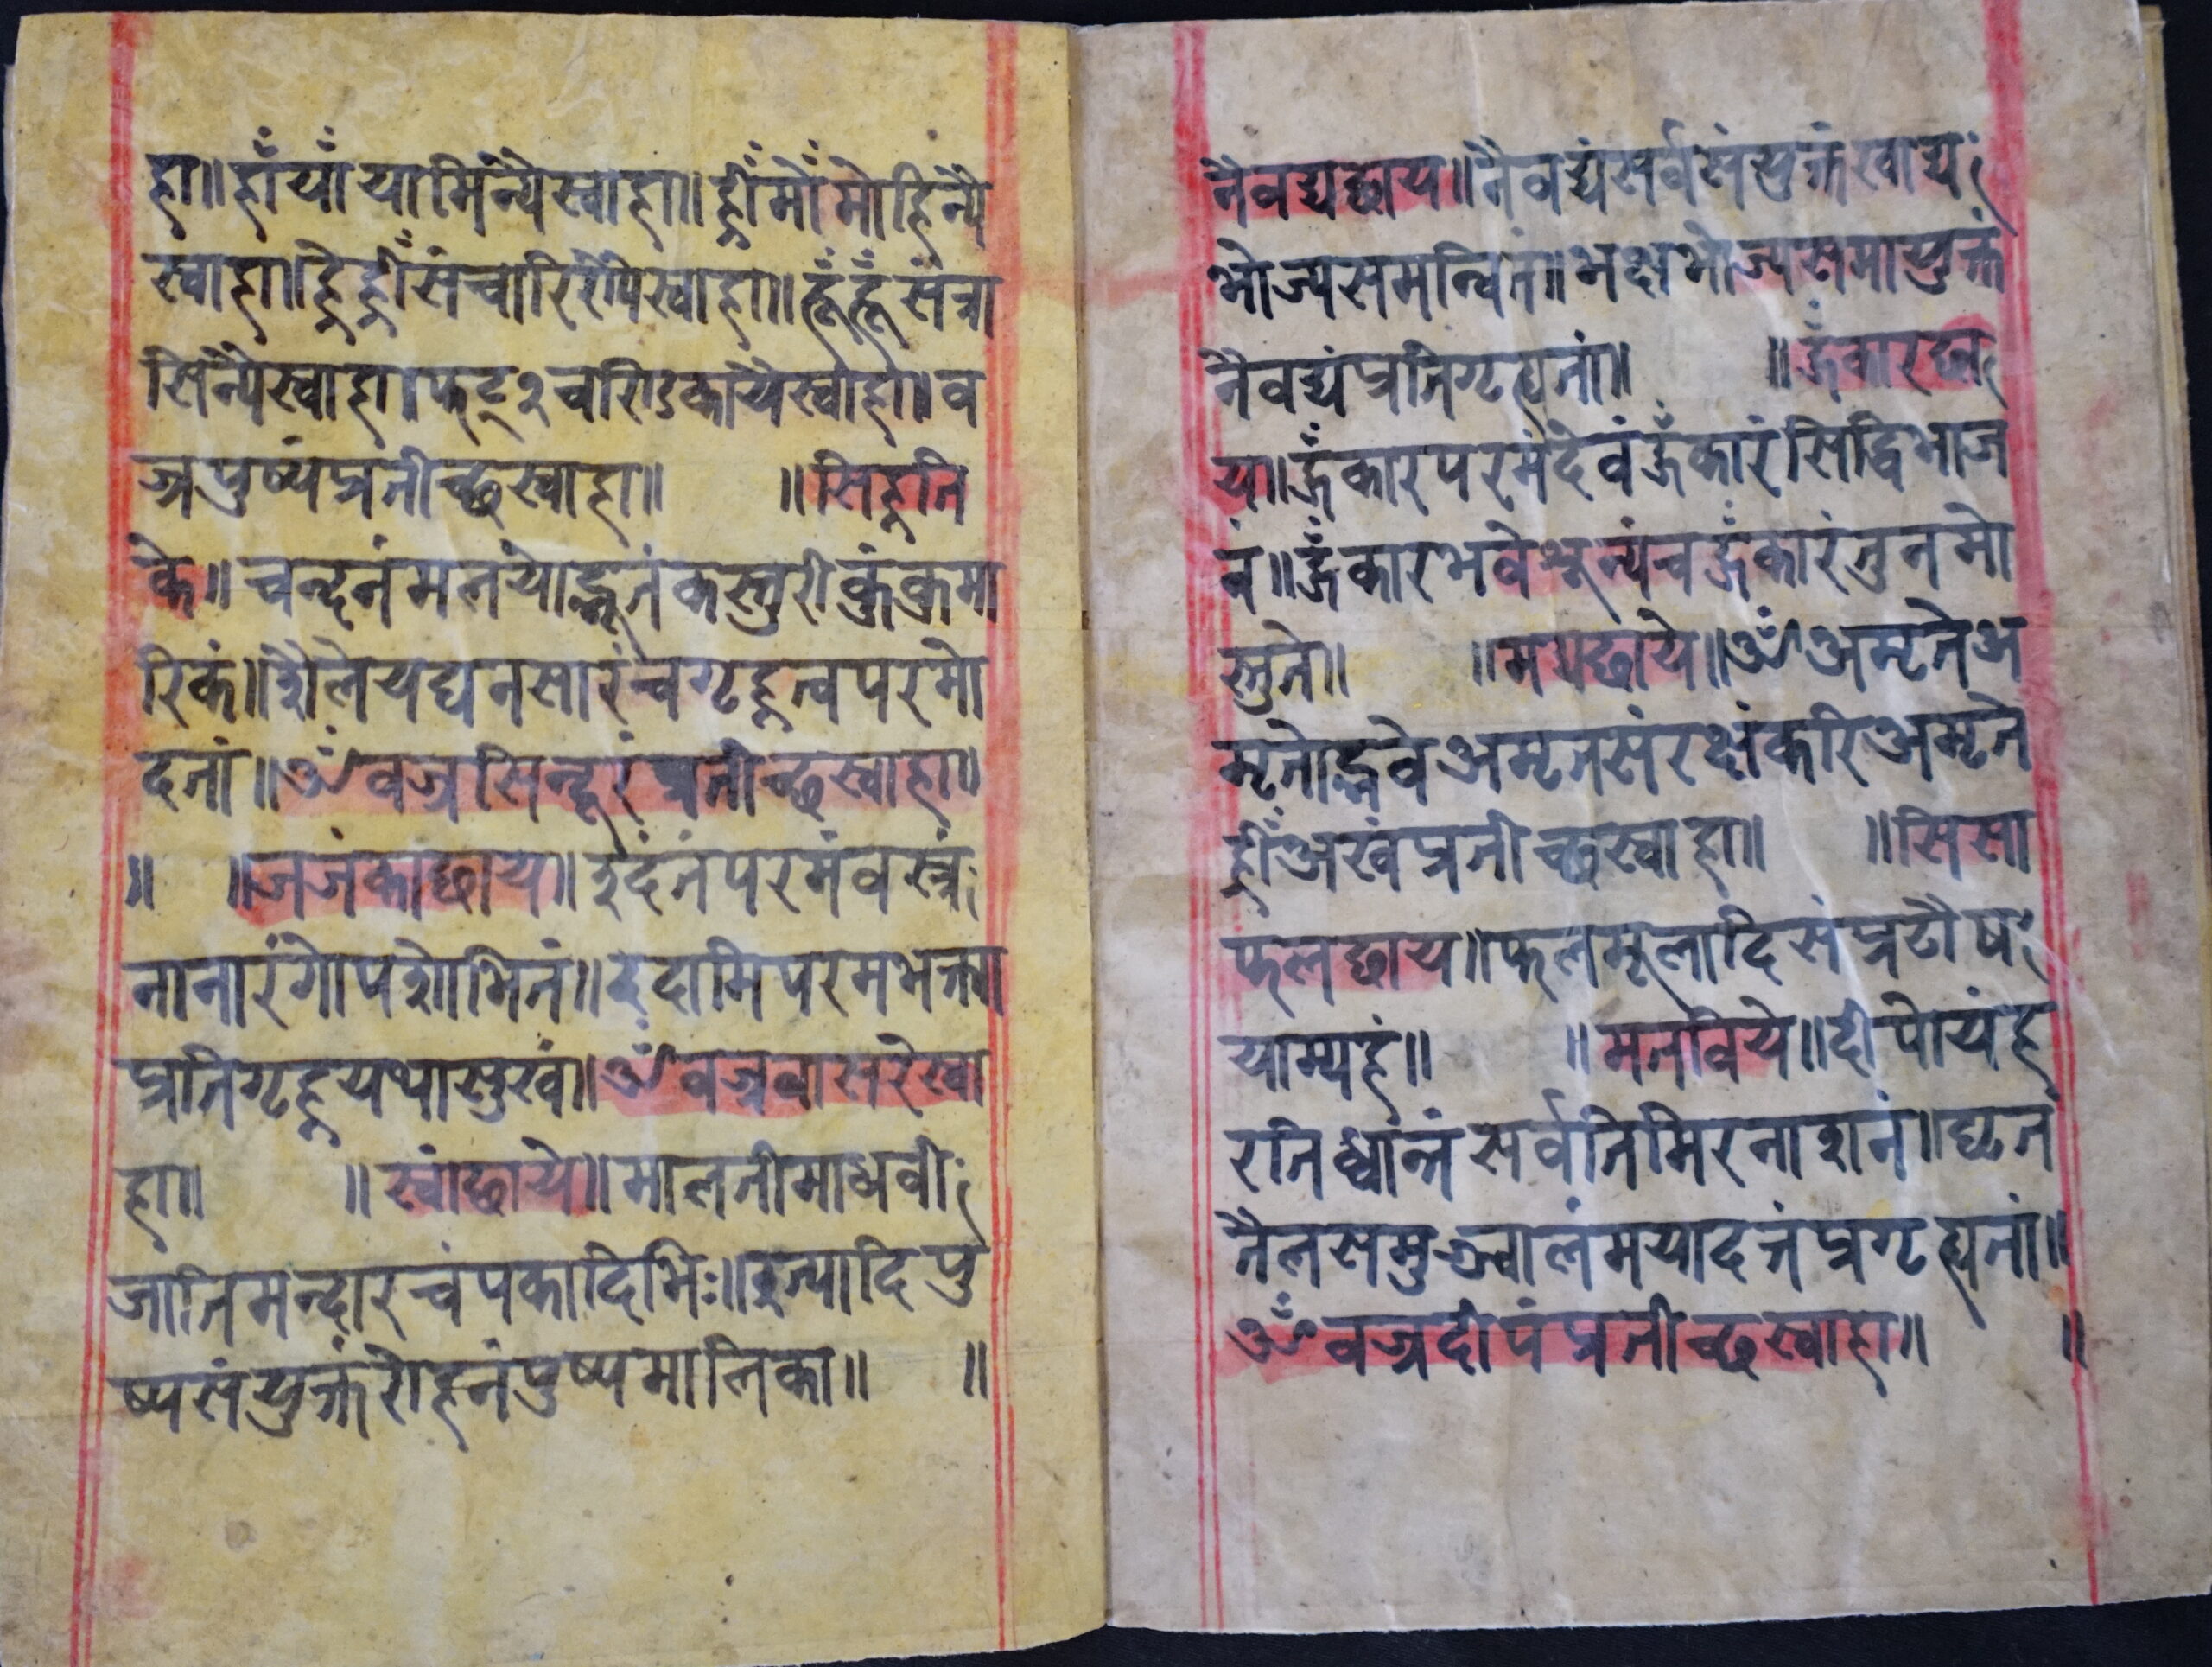 हा॥ह्राँयाँयामिन्यैस्वाहा॥ह्रीँमोँमोहिन्यै
स्वाहा॥ह्रिँह्रीँसंचारिण्यैस्वाहा॥ह्रूँह्रूँसंत्रा
सिन्यैस्वाहा॥फट्२चण्डिकायैस्वाहा॥व
ज्रपुष्पंप्रतीच्छस्वाहा॥ ॥सिह्लति
के॥चन्दनंमलयोद्भूतंकस्तुरीकुंकुमा
रिकं॥शैलेयघनसारंचगृह्णत्वपरमो
दतां॥ॐवज्रसिन्दूरंप्रतीच्छस्वाहा॥
॥ ॥जजंकाछाय॥इदंतंपरमंवस्त्रं
नानारंगोपशोभितं॥ददामिपरमभक्त्या
प्रतिगृह्णयथासुखं॥ॐवज्रवाससेस्वा
हा॥ ॥स्वांछाये॥मालतीमाधवी
जातिमन्दारचंपकादिभिः॥इत्यादिपु
ष्पसंयुक्तंरोहनंपुष्पमालिका॥ ॥
नैवद्यछाय॥नैवद्यंसर्वसंयुक्तंखाद्य
भोज्यसमन्वितं॥भक्षभोज्यसमायुक्तं
नैवद्यंप्रतिगृह्यतां॥ ॥ॐकारछा
य॥ॐकारपरमंदेवंॐकारंसिद्धिभाज
नं॥ॐकारभवेश्रून्यंचॐकारंतुनमो
स्तुते॥ ॥मद्यछाये॥ॐअमृतेअ
मृतोद्भवेअमृतसंरक्षांकरिअमृते
ह्रीँअखंप्रतीच्छस्वाहा॥ ॥सिसा
फुलछाय॥फलमूलादिसंप्रढौष
याम्यहं॥ ॥मतविये॥दीपोयंह
रतिध्वान्तंसर्वतिमिरनाशनं॥घृत
तैलसमुज्वालंमयादत्तंप्रगृह्यतां॥
ॐवज्रदीपंप्रतीच्छस्वाहा॥ ॥